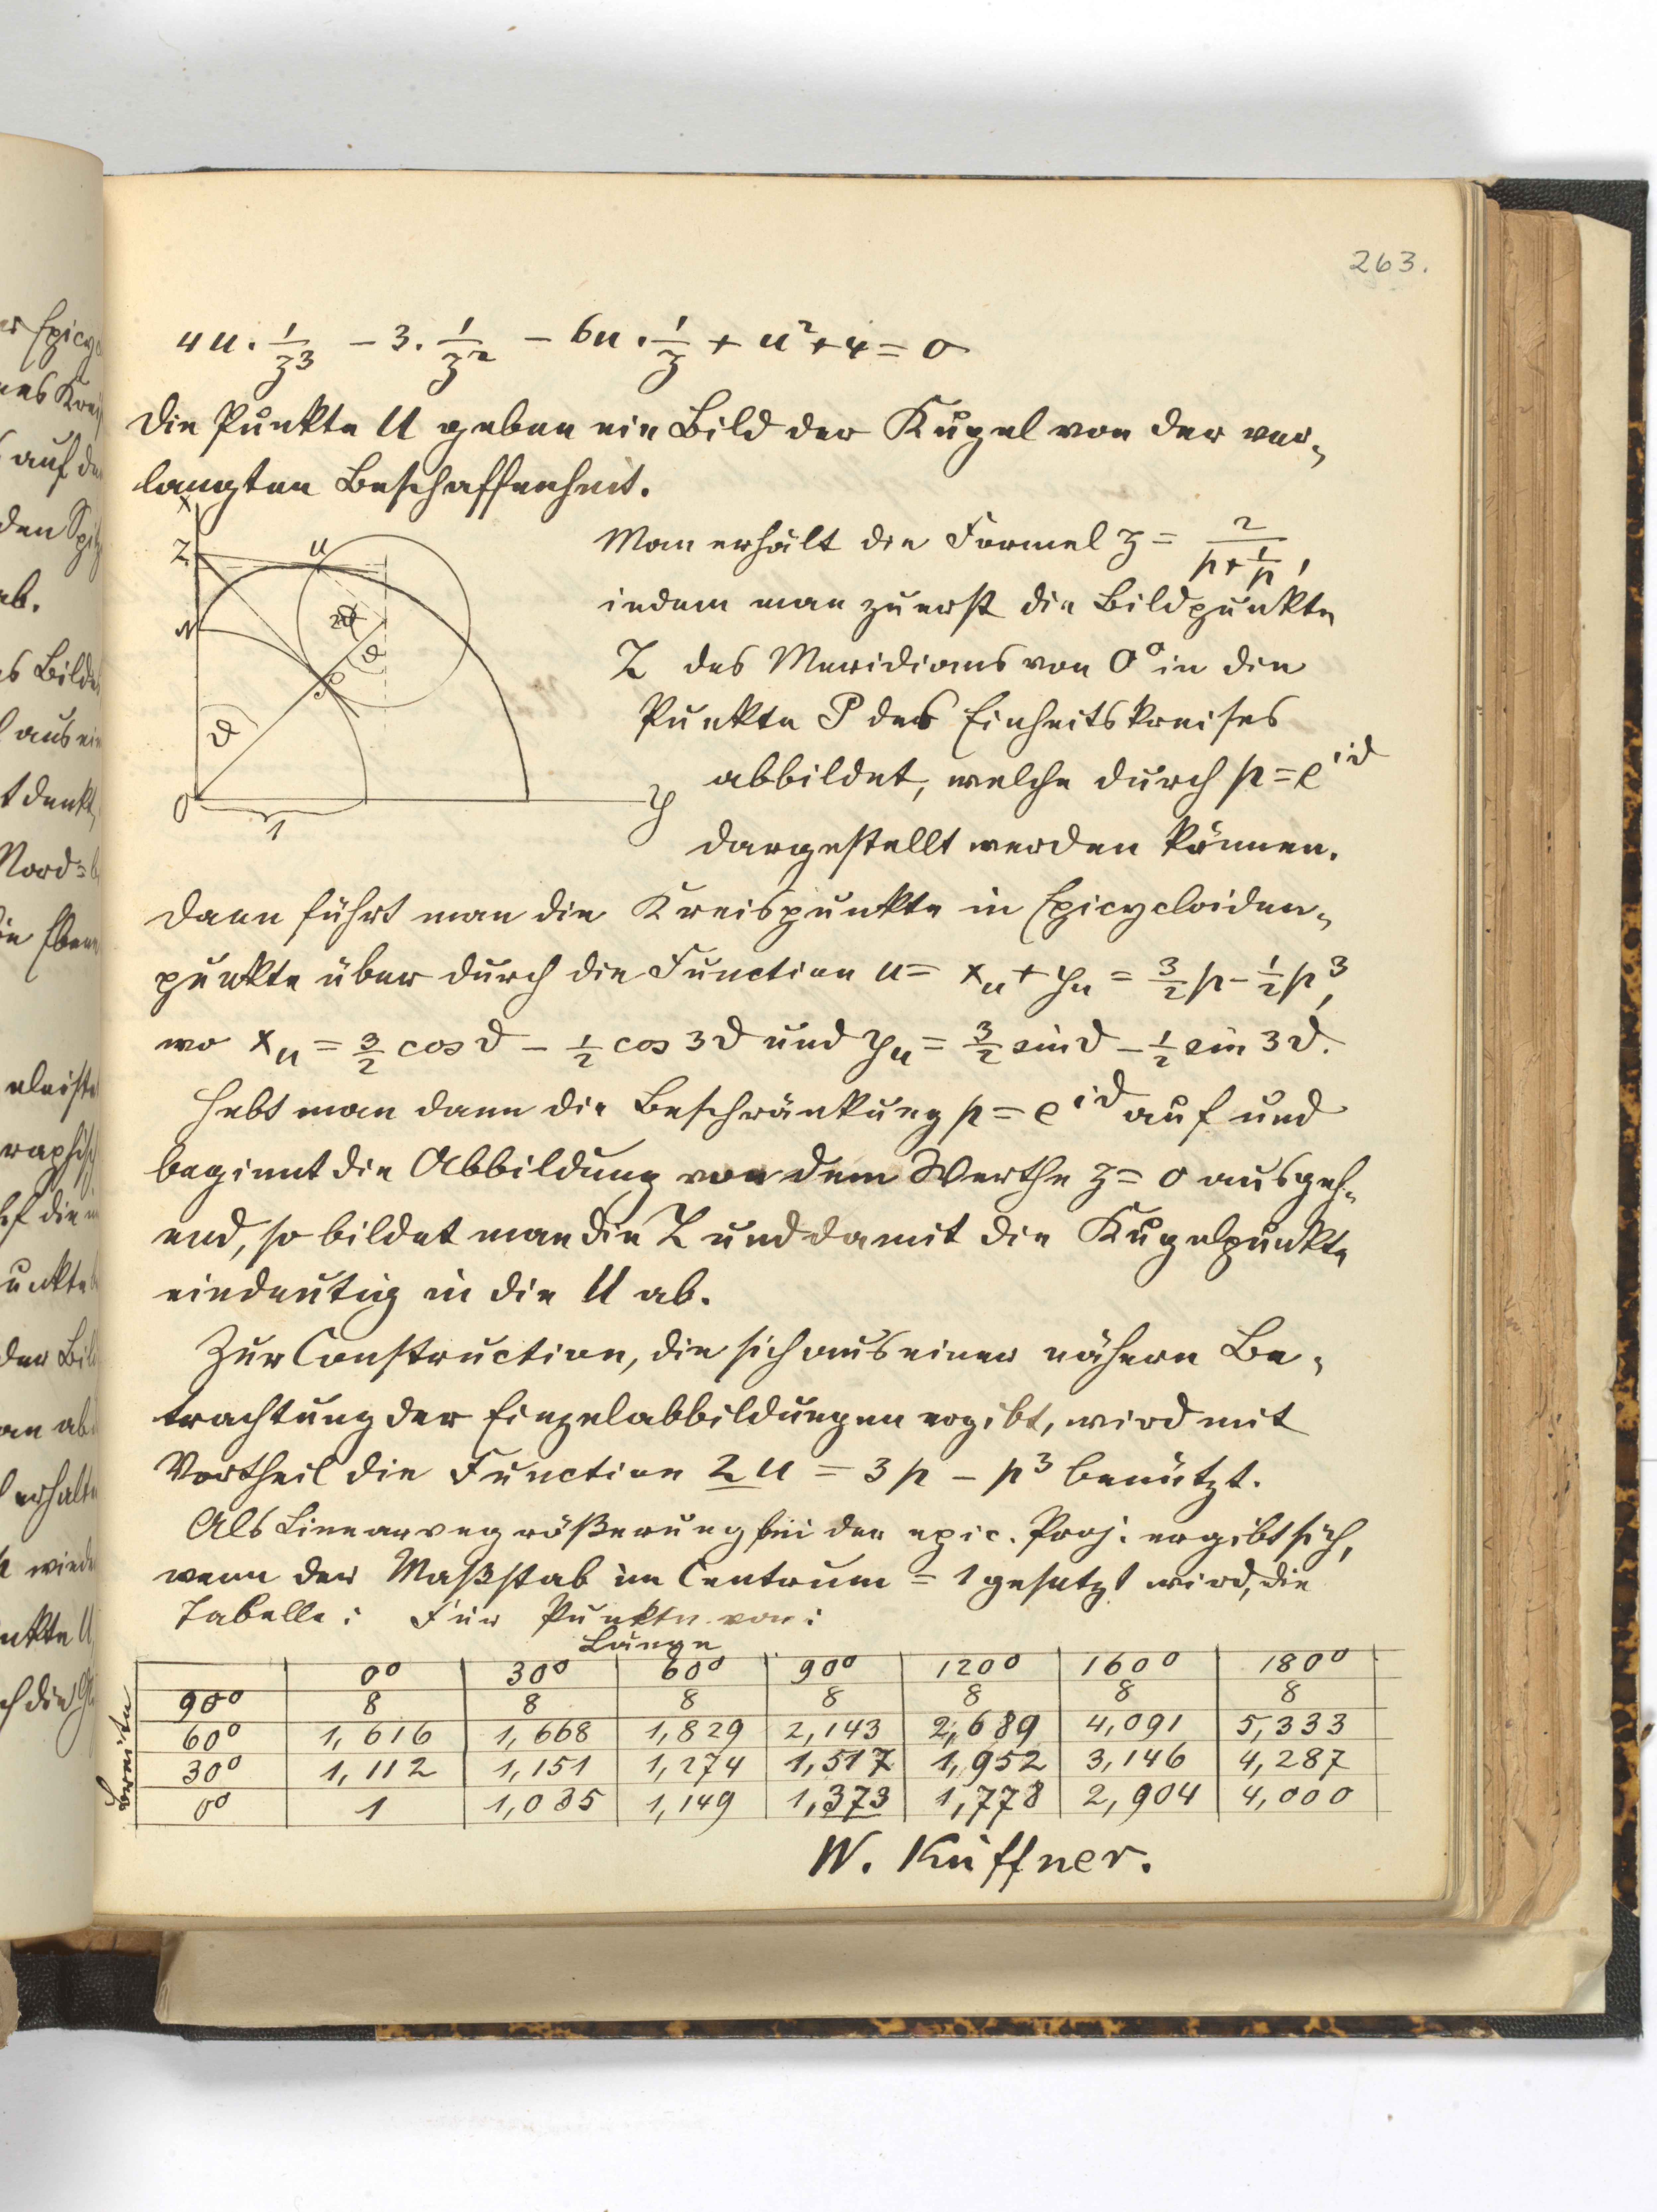 263.
4u · 1/z³ − 3 · 1/z² − 6u · 1/z + u² + 4 = 0
Die Punkte U geben ein Bild der Kugel von der ver-
langten Beschaffenheit.
Man erhält die Formel z = 2/(p + 1/p),
indem man zuerst die Bildpunkte
Z des Meridians von 0° in die
Punkte P des Einheitskreises
abbildet, welche durch p = e^{iϑ}
dargestellt werden können.
x
Z
U
N
2ϑ
ϑ
P
ϑ
O
1
y
Dann führt man die Kreispunkte in Epicycloiden-
punkte über durch die Function u = x_u + y_u = 3/2 p − 1/2 p³,
wo x_u = 3/2 cos ϑ − 1/2 cos 3ϑ und y_u = 3/2 sin ϑ − 1/2 sin 3ϑ.
Hebt man dann die Beschränkung p = e^{iϑ} auf und
beginnt die Abbildung von dem Werthe z = 0 ausgeh-
end, so bildet man die Z und damit die Kugelpunkte
eindeutig in die U ab.
Zur Construction, die sich aus einer nähern Be-
trachtung der Einzelabbildungen ergibt, wird mit
Vortheil die Function 2u = 3p − p³ benützt.
Als Linearvegrößerung bei der epic. Proj. ergibt sich,
wenn der Maßstab im Centrum = 1 gesetzt wird, die
Tabelle: Für Punkte von:
Länge
0° 30° 60° 90° 120° 160° 180°
90° 8 8 8 8 8 8 8
60° 1,616 1,668 1,829 2,143 2,689 4,091 5,333
30° 1,112 1,151 1,274 1,517 1,952 3,146 4,287
0° 1 1,035 1,149 1,373 1,778 2,904 4,000
W. Küffner.